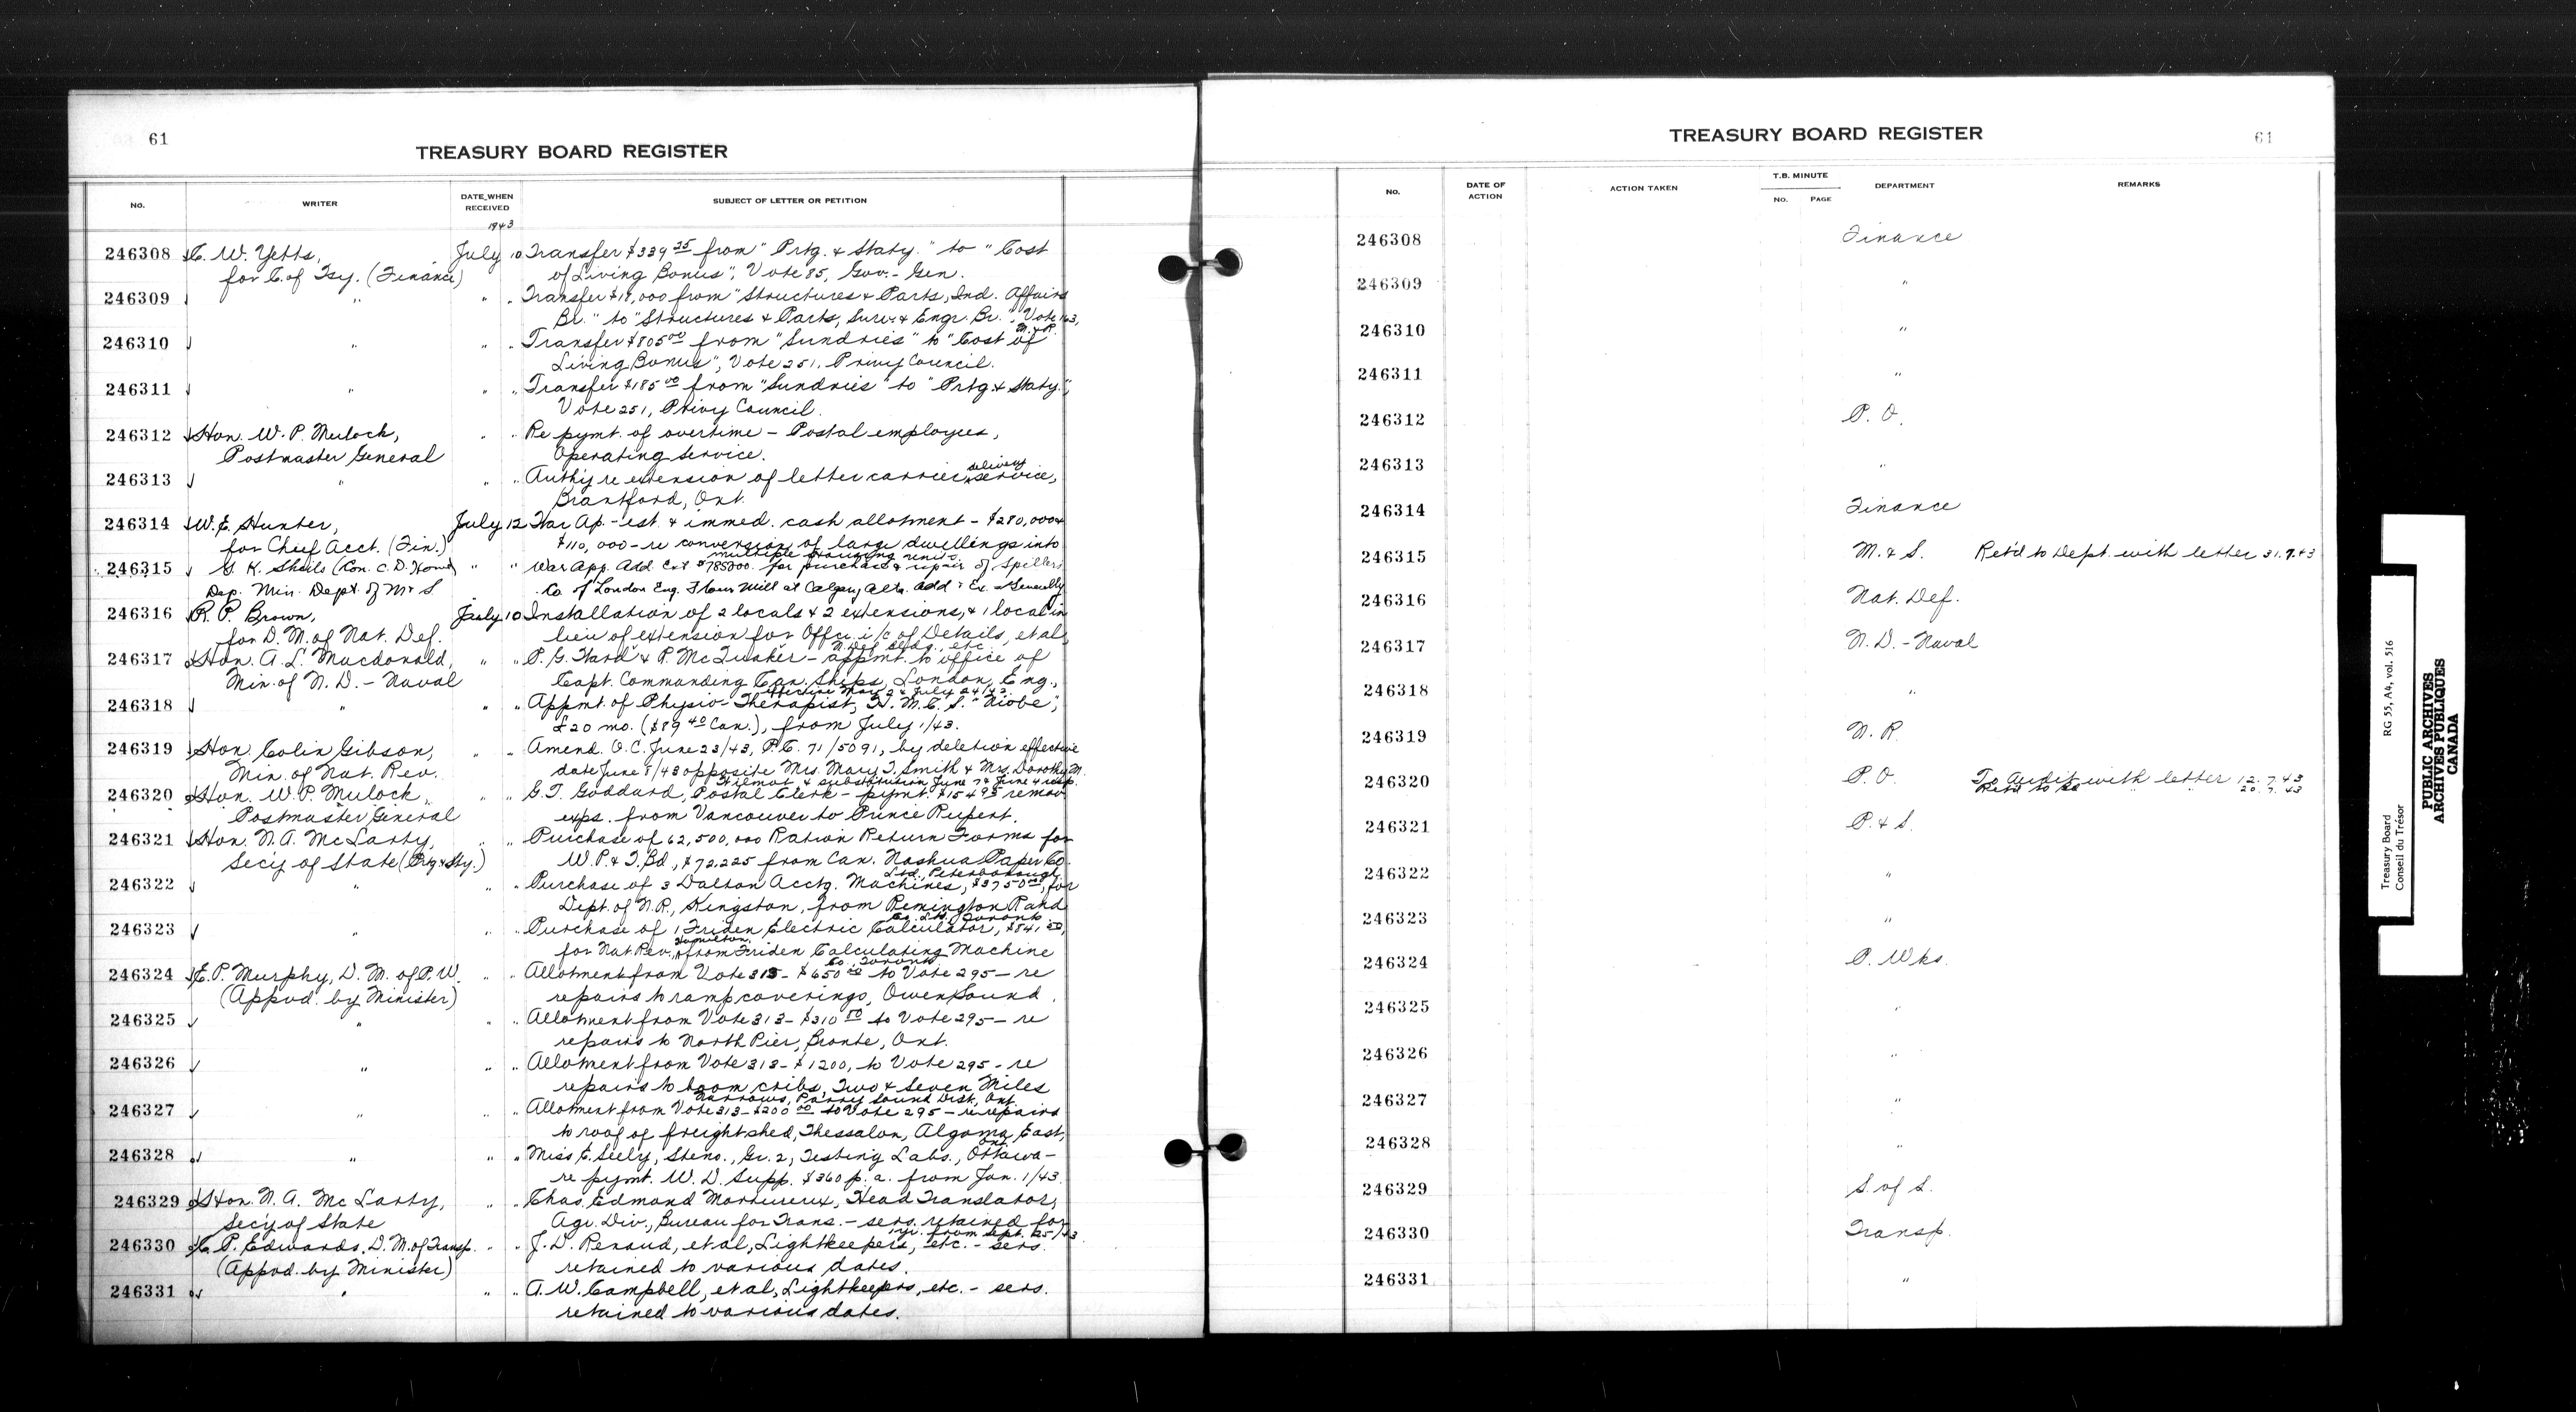 61
TREASURY BOARD REGISTER
No.
WRITER
DATE WHEN RECEIVED
SUBJECT OF LETTER OR PETITION
1943
246308 C. W. Yetts, July 10 Transfer $339 25 from "Prtg. & Staty." to "Cost
for C. of Tsy. (Finance) of Living Bonus", Vote 85, Gov.-Gen.
246309 " " " Transfer $19,000 from "Structures & Parts, Ind. Affairs
Br." to "Structures & Parts, Surv. & Engr. Br.", Vote 163,
M. & R.
246310 " " " Transfer $805 00 from "Sundries" to "Cost of
Living Bonus", Vote 251, Privy Council.
246311 " " " Transfer $185 00 from "Sundries" to "Prtg. & Staty.",
Vote 251, Privy Council.
246312 Hon. W. P. Mulock, " " Re pymt. of overtime - Postal employees,
Postmaster General Operating Service.
246313 " " " Auth'y re extension of letter carrier delivery service,
Brantford, Ont.
246314 W. E. Hunter, July 12 War Ap. - est. & immed. cash allotment - $280,000 &
for Chief Acct. (Fin.) $110,000 - re conversion of large dwellings into
multiple housing units.
246315 G. K. Sheils (Hon. C. D. Howe) " " War App. Add. Ext $785000. for purchase & repair of Spillers
Dep. Min. Dept. of M & S Co. of London Eng. Flour Mill at Calgary Alta. Add & Ex. Generally
246316 R. P. Brown, July 10 Installation of 2 locals & 2 extensions, & 1 local in
for D. M. of Nat. Def. lieu of extension for Offcr. i/c of Details, et al,
N. Def. Bldg., etc.
246317 Hon. A. L. Macdonald, " " P. G. Ward & P. McTusker - appmt. to office of
Min. of N. D. - Naval Capt. Commanding Can. Ships, London, Eng.,
effective May 2 & July 24/43.
246318 " " " Appmt. of Physio-Therapist, H. M. C. S. "Niobe",
£20 mo. ($89 40 Can.), from July 1/43.
246319 Hon. Colin Gibson, " " Amend. O. C. June 23/43, P. C. 71/5091, by deletion effective
Min. of Nat. Rev. date June 8/43 opposite Mrs. Mary T. Smith & Mrs. Dorothy M.
Wilmot & substitution June 7 & June 4 resp.
246320 Hon. W. P. Mulock, " " G. T. Goddard, Postal Clerk - pymt. $154 95 remov.
Postmaster General exps. from Vancouver to Prince Rupert.
246321 Hon. N. A. McLarty, " " Purchase of 62,500,000 Ration Return Forms for
Sec'y of State (Prtg. & Sty.) W. P. & T. Bd., $72,225 from Can. Nashua Paper Co.
Ltd., Peterborough
246322 " " " Purchase of 3 Dalton Acctg. Machines, $3750 00, for
Dept. of N. R., Kingston, from Remington Rand
Co. Ltd., Toronto
246323 " " " Purchase of 1 Friden Electric Calculator, $841.50,
for Nat. Rev., Hamilton, from Friden Calculating Machine
Co., Toronto
246324 E. P. Murphy, D. M. of P. W. " " Allotment from Vote 313 - $650 00 to Vote 295 - re
(Appvd. by Minister) repairs to ramp coverings, Owen Sound.
246325 " " " Allotment from Vote 313 - $310 50 to Vote 295 - re
repairs to North Pier, Bronte, Ont.
246326 " " " Allotment from Vote 313 - $1200, to Vote 295 - re
repairs to boom cribs, Two & Seven Miles
Narrows, Parry Sound Dist., Ont.
246327 " " " Allotment from Vote 313 - $200 00 to Vote 295 - re repairs
to roof of freight shed, Thessalon, Algoma East,
Ont.
246328 " " " Miss E. Seely, Steno., Gr. 2, Testing Labs., Ottawa -
re pymt. W. D. Supp. $360 p. a. from Jan. 1/43.
246329 Hon. N. A. McLarty, " " Chas. Edmond Martureux, Head Translator,
Sec'y of State Agr. Div., Bureau for Trans. - sers. retained for
1 yr. from Sept. 25/43.
246330 C. P. Edwards, D. M. of Transp. " " J. D. Renaud, et al, Lightkeepers, etc. - sers.
(Appvd. by Minister) retained to various dates.
246331 " " " A. W. Campbell, et al, Lightkeepers, etc. - sers.
retained to various dates.
TREASURY BOARD REGISTER
61
No.
DATE OF ACTION
ACTION TAKEN
T.B. MINUTE
No. PAGE
DEPARTMENT
REMARKS
246308 Finance
246309 "
246310 "
246311 "
246312 P. O.
246313 "
246314 Finance
246315 M. & S. Ret'd to Dept. with letter 31.7.43
246316 Nat. Def.
246317 N. D. - Naval
246318 "
246319 N. R.
246320 P. O. To Audit with letter 12.7.43
Ret'd to 20.7.43
246321 P. & S.
246322 "
246323 "
246324 P. Wks.
246325 "
246326 "
246327 "
246328 "
246329 S. of S.
246330 Transp.
246331 "
Treasury Board RG 55, A4, vol. 516
Conseil du Trésor
PUBLIC ARCHIVES
ARCHIVES PUBLIQUES
CANADA